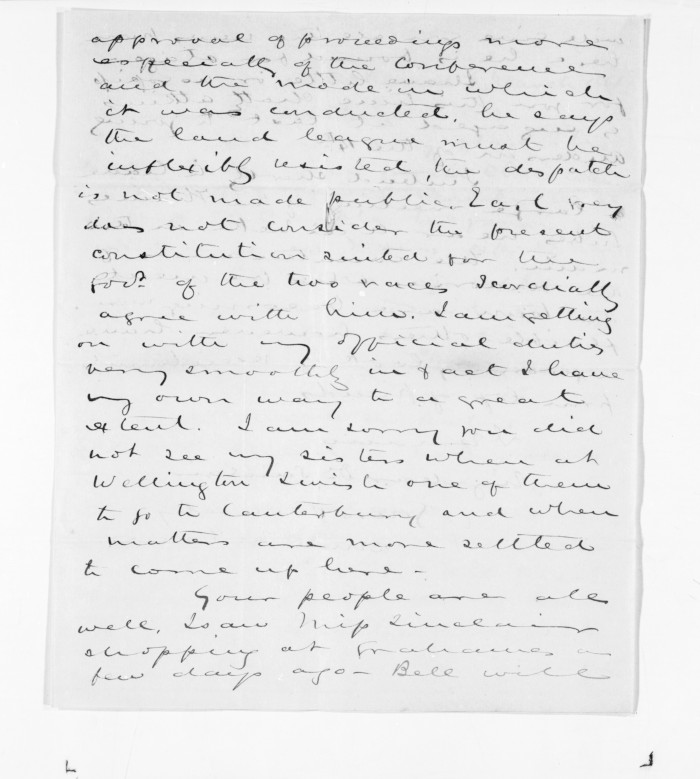 approval of proceedings more
especially of the Conference
and the mode in which
it was conducted. he says
the land league must be
inflexibly resisted, the despatch
is not made public. Ea. Grey
does not consider the present
constitution suited for the
Govt. of the two races I cordially
agree with him. I am getting
on with my official duties
very smoothly in fact I have
my own way to a great
extent. I am sorry you did
not see my sisters when at
Wellington I wish one of them
to go to Canterbury and when
matters are more settled
to come up here -
Your people are all
well. I saw Miss Sinclair
shopping at Grahames a
few days ago - Bell will